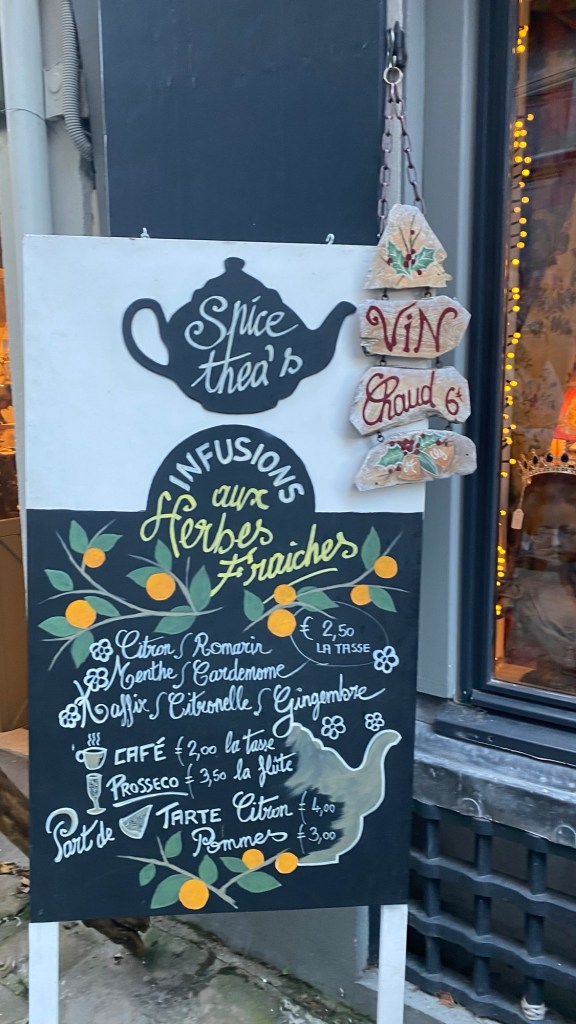 Spice
thea's
INFUSIONS
aux
Herbes
Fraiches
€ 2,50
LA TASSE
Citron / Romarin
Menthe / Cardemome
Kaffir / Citronelle / Gingembre
CAFÉ € 2,00 la tasse
PROSSECO € 3,50 la flûte
Part de TARTE Citron € 4,00
Pommes € 3,00
VIN
Chaud 6€